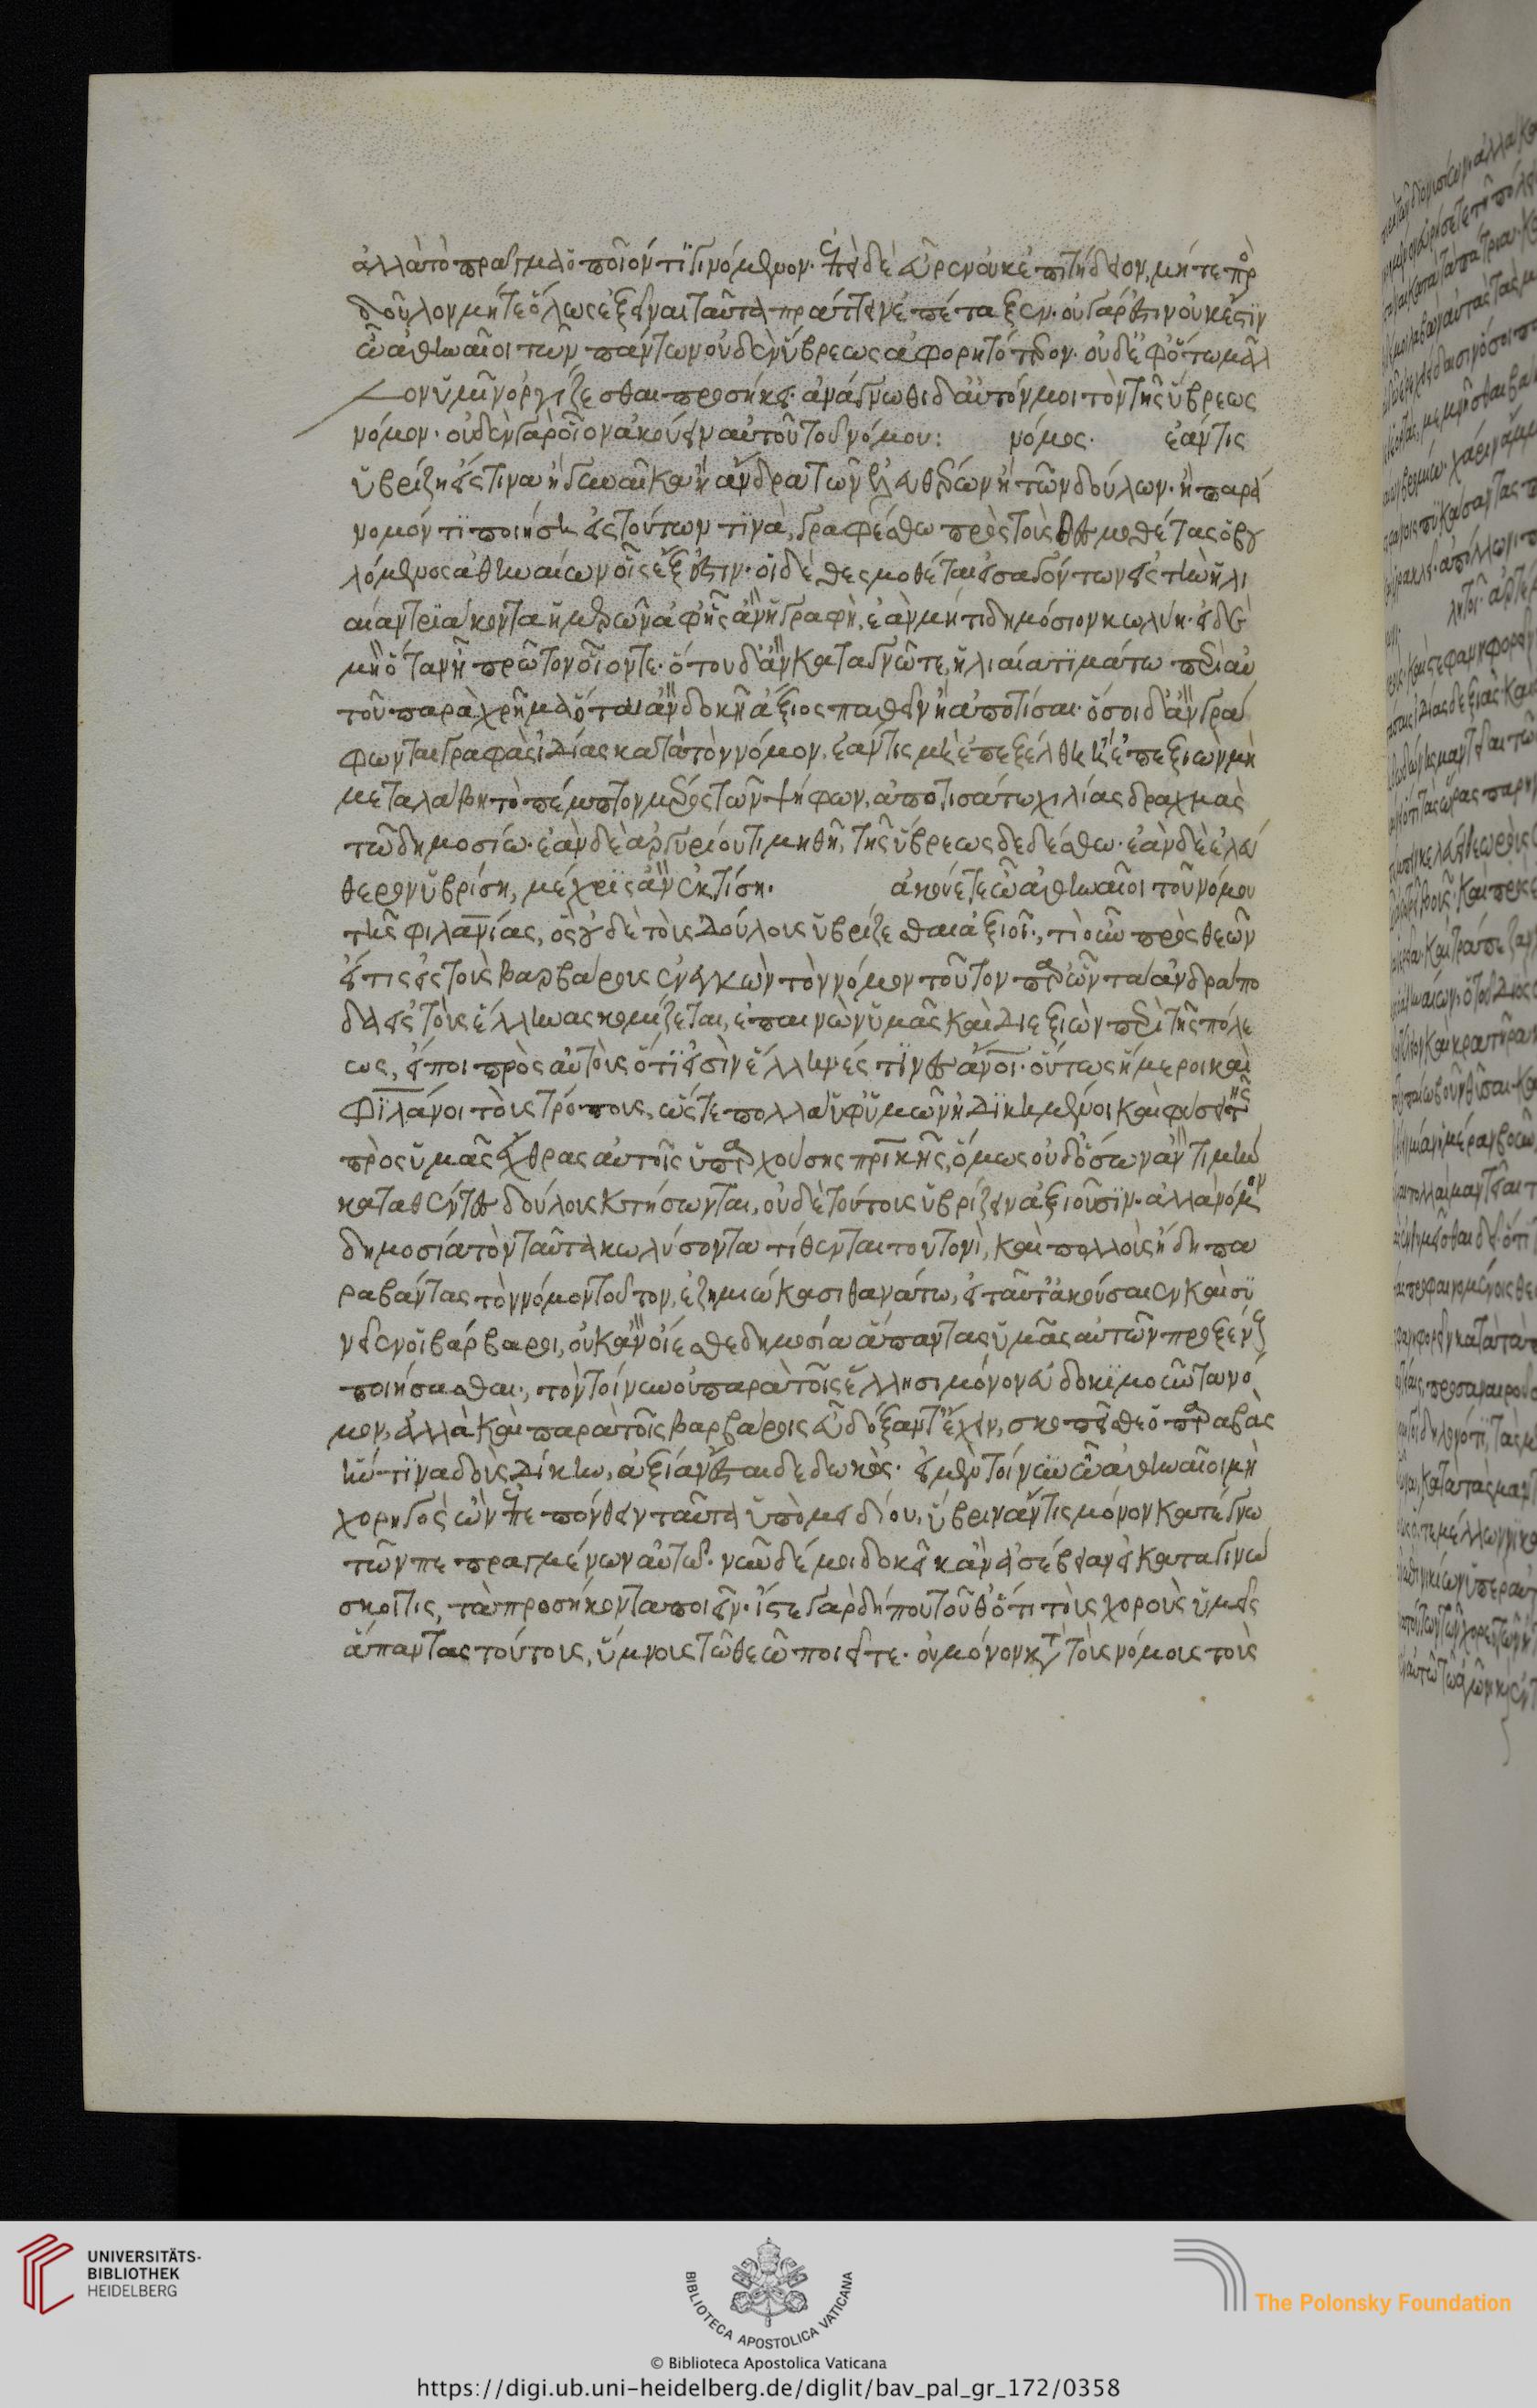 ἀλλὰ τὸ πρᾶγμα ὁποῖόν τι γινόμενον. ἐπειδὴ δὲ εὗρεν οὐκ ἐπιτήδειον, μήτε πρὸς
δοῦλον μήτε ὅλως ἐξεῖναι ταῦτα πράττειν ἐπέταξεν. οὐ γάρ ἐστιν οὐκ ἔστιν
ὦ ἀθηναῖοι τῶν πάντων οὐδὲν ὕβρεως ἀφορητότερον. οὐδ' ἐφ' ὅτω μᾶλ
λον ὑμῖν ὀργίζεσθαι προσήκει. ἀνάγνωθι δ' αὐτόν μοι τὸν τῆς ὕβρεως
νόμον. οὐδὲν γὰρ οἷον ἀκούειν αὐτοῦ τοῦ νόμου: νόμος. ἐάν τις
ὑβρίζη εἴς τινα ἢ γυναῖκα ἢ ἄνδρα τῶν ἐλευθέρων ἢ τῶν δούλων. ἢ παρά
νομόν τι ποιήση εἰς τούτων τινὰ, γραφέσθω πρὸς τοὺς θεσμοθέτας ὁ βου
λόμενος ἀθηναίων οἷς ἔξεστιν. οἱ δὲ θεσμοθέται εἰσαγόντων εἰς τὴν ἡλι
αίαν τριάκοντα ἡμερῶν ἀφ' ἧς ἂν ἡ γραφὴ, ἐὰν μή τι δημόσιον κωλύη. εἰ δὲ
μὴ ὅταν ἦ πρῶτον οἷόν τε. ὅτου δ' ἂν καταγνῶτε, ἡλιαία τιμάτω περὶ αὐ
τοῦ παρὰ χρῆμα ὅτου ἂν δοκῆ ἄξιος παθεῖν ἢ ἀποτίσαι. ὅσοι δ' ἂν γρά
φωνται γραφὰς ἰδίας κατὰ τὸν νόμον. ἐάν τις μὴ ἐπεξέλθη ἢ ἐπεξιὼν μὴ
μεταλάβη τὸ πέμπτον μέρος τῶν ψήφων, ἀποτισάτω χιλίας δραχμὰς
τῶ δημοσίω. ἐὰν δὲ ἀργυρίου τιμηθῆ, τῆς ὕβρεως δεδέσθω. ἐὰν δὲ ἐλεύ
θερον ὑβρίση, μέχρις ἂν ἐκτίση. ἀκούετε ὦ ἀθηναῖοι τοῦ νόμου
τῆς φιλανίας, ὃς οὐδὲ τοὺς δούλους ὑβρίζεσθαι ἀξιοῖ., τί οὖν πρὸς θεῶν
εἴ τις εἰς τοὺς βαρβάρους ἐνεγκὼν τὸν νόμον τοῦτον παρ' ὧν τὰ ἀνδράπο
δα εἰς τοὺς ἕλληνας κομίζεται, ἐπαινῶν ὑμᾶς καὶ διεξιὼν περὶ τῆς πόλε
ως, εἴποι πρὸς αὐτοὺς ὅτι εἰσὶν ἕλληνές τινες ἄνοι. οὕτως ἥμεροι καὶ
φιλάνοι τοὺς τρόπους, ὥστε πολλὰ ὑφ' ὑμῶν ἠδικημένοι καὶ φύσει τῆς
πρὸς ὑμᾶς ἔχθρας αὐτοῖς ὑπαρχούσης πρικῆς, ὅμως οὐδ' ὅσων ἂν τιμὴν
καταθέντες δούλους κτήσωνται, οὐδὲ τούτους ὑβρίζειν ἀξιοῦσιν. ἀλλὰ νόμον
δημοσία τὸν ταῦτα κωλύσοντα τίθενται τουτονὶ, καὶ πολλοὺς ἤδη πα
ραβάντας τὸν νόμον τοῦτον, ἐζημιώκασι θανάτω, εἰ ταῦτ' ἀκούσαιεν καὶ συ
νεῖεν οἱ βάρβαροι, οὐκ ἂν οἴεσθε δημοσία ἅπαντας ὑμᾶς αὐτῶν προξένους
ποιήσασθαι., τὸν τοίνυν οὐ παρὰ τοῖς ἕλλησι μόνον εὐδοκιμοῦντα νό
μον, ἀλλὰ καὶ παρὰ τοῖς βαρβάροις εὖ δόξαντ' ἔχειν, σκοπεῖσθε ὁ παραβὰς
ἥν τινα δοὺς δίκην, ἀξίαν ἔσται δεδωκὼς. εἰ μὲν τοίνυν ὦ ἀθηναῖοι μὴ
χορηγὸς ὢν ἐπεπόνθειν ταῦτα ὑπὸ μειδίου, ὕβριν ἄν τις μόνον κατέγνω
τῶν πεπραγμένων αὐτῶ. νῦν δέ μοι δοκεῖ κἂν ἀσέβειαν εἰ καταγινώ
σκοι τις, τὰ προσήκοντα ποιεῖν. ἴστε γὰρ δήπου τοῦθ' ὅτι τοὺς χοροὺς ὑμεῖς
ἅπαντας τούτους, ὕμνους τῶ θεῶ ποιεῖτε. οὐ μόνον κατὰ τοὺς νόμους τοὺς
UNIVERSITÄTS-
BIBLIOTHEK
HEIDELBERG
BIBLIOTECA APOSTOLICA VATICANA
The Polonsky Foundation
© Biblioteca Apostolica Vaticana
https://digi.ub.uni-heidelberg.de/diglit/bav_pal_gr_172/0358